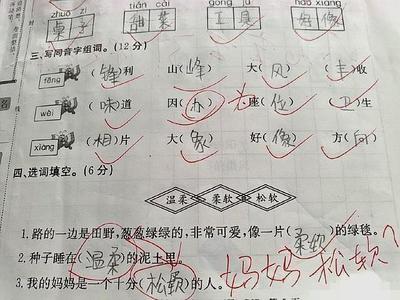 zhuō zi tián cài gōng jù hǎo xiàng
桌子 甜菜 工具 好像
三、写同音字组词。(12 分)
fēng (锋)利 山(峰) 大(风) (丰)收
wèi (味)道 因(办) 座(位) (卫)生
xiàng (相)片 大(象) 好(像) 方(向)
四、选词填空。(6 分)
温柔 柔软 松软
1. 路的一边是田野,葱葱绿绿的,非常可爱,像一片(柔软)的绿毯。
2. 种子睡在(温柔)的泥土里。
3. 我的妈妈是一个十分(松软)的人。
妈妈松软?
名